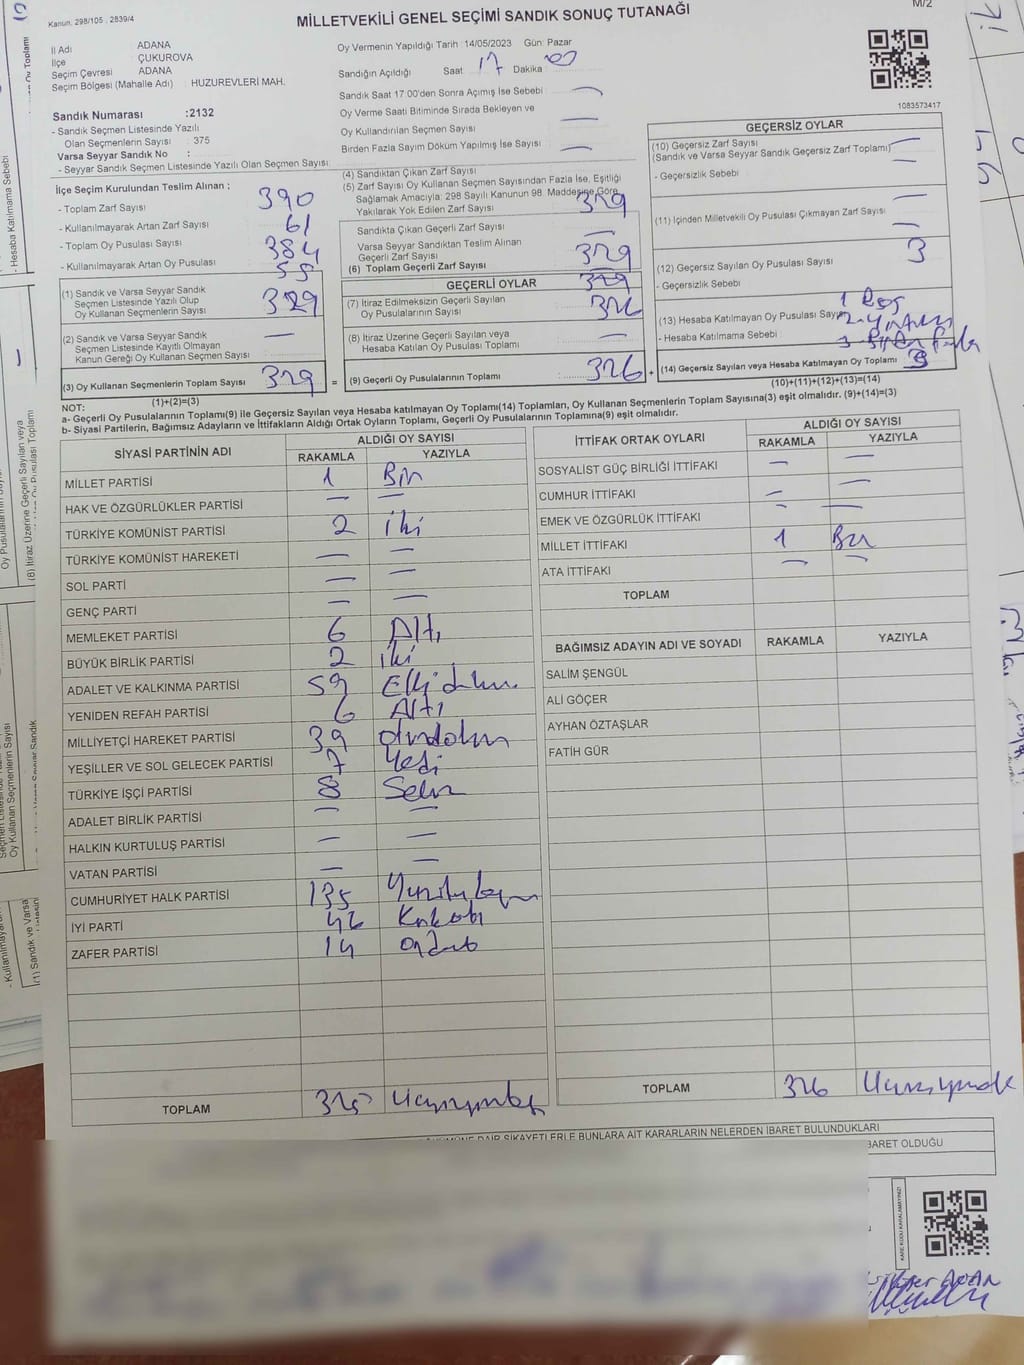 Kanun, 298/105 , 2839/4
MİLLETVEKİLİ GENEL SEÇİMİ SANDIK SONUÇ TUTANAĞI
M/2
İl Adı ADANA
İlçe ÇUKUROVA
Seçim Çevresi ADANA
Seçim Bölgesi (Mahalle Adı) : HUZUREVLERİ MAH.
Sandık Numarası :2132
- Sandık Seçmen Listesinde Yazılı
Olan Seçmenlerin Sayısı : 375
Varsa Seyyar Sandık No :
- Seyyar Sandık Seçmen Listesinde Yazılı Olan Seçmen Sayısı:
Oy Vermenin Yapıldığı Tarih :14/05/2023 Gün: Pazar
Sandığın Açıldığı Saat 17 Dakika 00
Sandık Saat 17.00'den Sonra Açımış İse Sebebi : —
Oy Verme Saati Bitiminde Sırada Bekleyen ve
Oy Kullandırılan Seçmen Sayısı —
Birden Fazla Sayım Döküm Yapılmış İse Sayısı : —
1083573417
İlçe Seçim Kurulundan Teslim Alınan :
- Toplam Zarf Sayısı 390
- Kullanılmayarak Artan Zarf Sayısı 61
- Toplam Oy Pusulası Sayısı 384
- Kullanılmayarak Artan Oy Pusulası 55
(1) Sandık ve Varsa Seyyar Sandık
Seçmen Listesinde Yazılı Olup
Oy Kullanan Seçmenlerin Sayısı 329
(2) Sandık ve Varsa Seyyar Sandık
Seçmen Listesinde Kayıtlı Olmayan
Kanun Gereği Oy Kullanan Seçmen Sayısı —
(3) Oy Kullanan Seçmenlerin Toplam Sayısı 329 =
(1)+(2)=(3)
(4) Sandıktan Çıkan Zarf Sayısı
(5) Zarf Sayısı Oy Kullanan Seçmen Sayısından Fazla İse, Eşitliği
Sağlamak Amacıyla: 298 Sayılı Kanunun 98. Maddesine Göre
Yakılarak Yok Edilen Zarf Sayısı 329
Sandıkta Çıkan Geçerli Zarf Sayısı —
Varsa Seyyar Sandıktan Teslim Alınan
Geçerli Zarf Sayısı 329
(6) Toplam Geçerli Zarf Sayısı
GEÇERLİ OYLAR 329
(7) İtiraz Edilmeksizin Geçerli Sayılan
Oy Pusulalarının Sayısı 326
(8) İtiraz Üzerine Geçerli Sayılan veya
Hesaba Katılan Oy Pusulası Toplamı —
(9) Geçerli Oy Pusulalarının Toplamı 326 +
GEÇERSİZ OYLAR
(10) Geçersiz Zarf Sayısı —
(Sandık ve Varsa Seyyar Sandık Geçersiz Zarf Toplamı) —
- Geçersizlik Sebebi
—
(11) İçinden Milletvekili Oy Pusulası Çıkmayan Zarf Sayısı —
(12) Geçersiz Sayılan Oy Pusulası Sayısı 3
- Geçersizlik Sebebi
(13) Hesaba Katılmayan Oy Pusulası Sayısı 1 Boş
- Hesaba Katılmama Sebebi :
(14) Geçersiz Sayılan veya Hesaba Katılmayan Oy Toplamı 3
(10)+(11)+(12)+(13)=(14)
NOT:
a- Geçerli Oy Pusulalarının Toplamı(9) ile Geçersiz Sayılan veya Hesaba katılmayan Oy Toplamı(14) Toplamları, Oy Kullanan Seçmenlerin Toplam Sayısına(3) eşit olmalıdır. (9)+(14)=(3)
b- Siyasi Partilerin, Bağımsız Adayların ve İttifakların Aldığı Ortak Oyların Toplamı, Geçerli Oy Pusulalarının Toplamına(9) eşit olmalıdır.
SİYASİ PARTİNİN ADI ALDIĞI OY SAYISI
RAKAMLA YAZIYLA
MİLLET PARTİSİ 1 Bir
HAK VE ÖZGÜRLÜKLER PARTİSİ — —
TÜRKİYE KOMÜNİST PARTİSİ 2 iki
TÜRKİYE KOMÜNİST HAREKETİ — —
SOL PARTİ — —
GENÇ PARTİ — —
MEMLEKET PARTİSİ 6 Altı
BÜYÜK BİRLİK PARTİSİ 2 iki
ADALET VE KALKINMA PARTİSİ 59 Elli dokuz
YENİDEN REFAH PARTİSİ 6 Altı
MİLLİYETÇİ HAREKET PARTİSİ 39 otuzdokuz
YEŞİLLER VE SOL GELECEK PARTİSİ 7 Yedi
TÜRKİYE İŞÇİ PARTİSİ 8 Sekiz
ADALET BİRLİK PARTİSİ — —
HALKIN KURTULUŞ PARTİSİ — —
VATAN PARTİSİ — —
CUMHURİYET HALK PARTİSİ 135 Yüzotuzbeş
İYİ PARTİ 46 Kırkaltı
ZAFER PARTİSİ 14 ondört
TOPLAM 325 Üçyüzyirmibeş
İTTİFAK ORTAK OYLARI ALDIĞI OY SAYISI
RAKAMLA YAZIYLA
SOSYALİST GÜÇ BİRLİĞİ İTTİFAKI — —
CUMHUR İTTİFAKI — —
EMEK VE ÖZGÜRLÜK İTTİFAKI — —
MİLLET İTTİFAKI 1 Bir
ATA İTTİFAKI — —
TOPLAM
BAĞIMSIZ ADAYIN ADI VE SOYADI RAKAMLA YAZIYLA
SALİM ŞENGÜL
ALİ GÖÇER
AYHAN ÖZTAŞLAR
FATİH GÜR
TOPLAM 326 Üçyüzyirmialtı
ŞİKAYETLERLE BUNLARA AİT KARARLARIN NELERDEN İBARET BULUNDUKLARI
İBARET OLDUĞU
KARE KODU KARALAMAYINIZ!